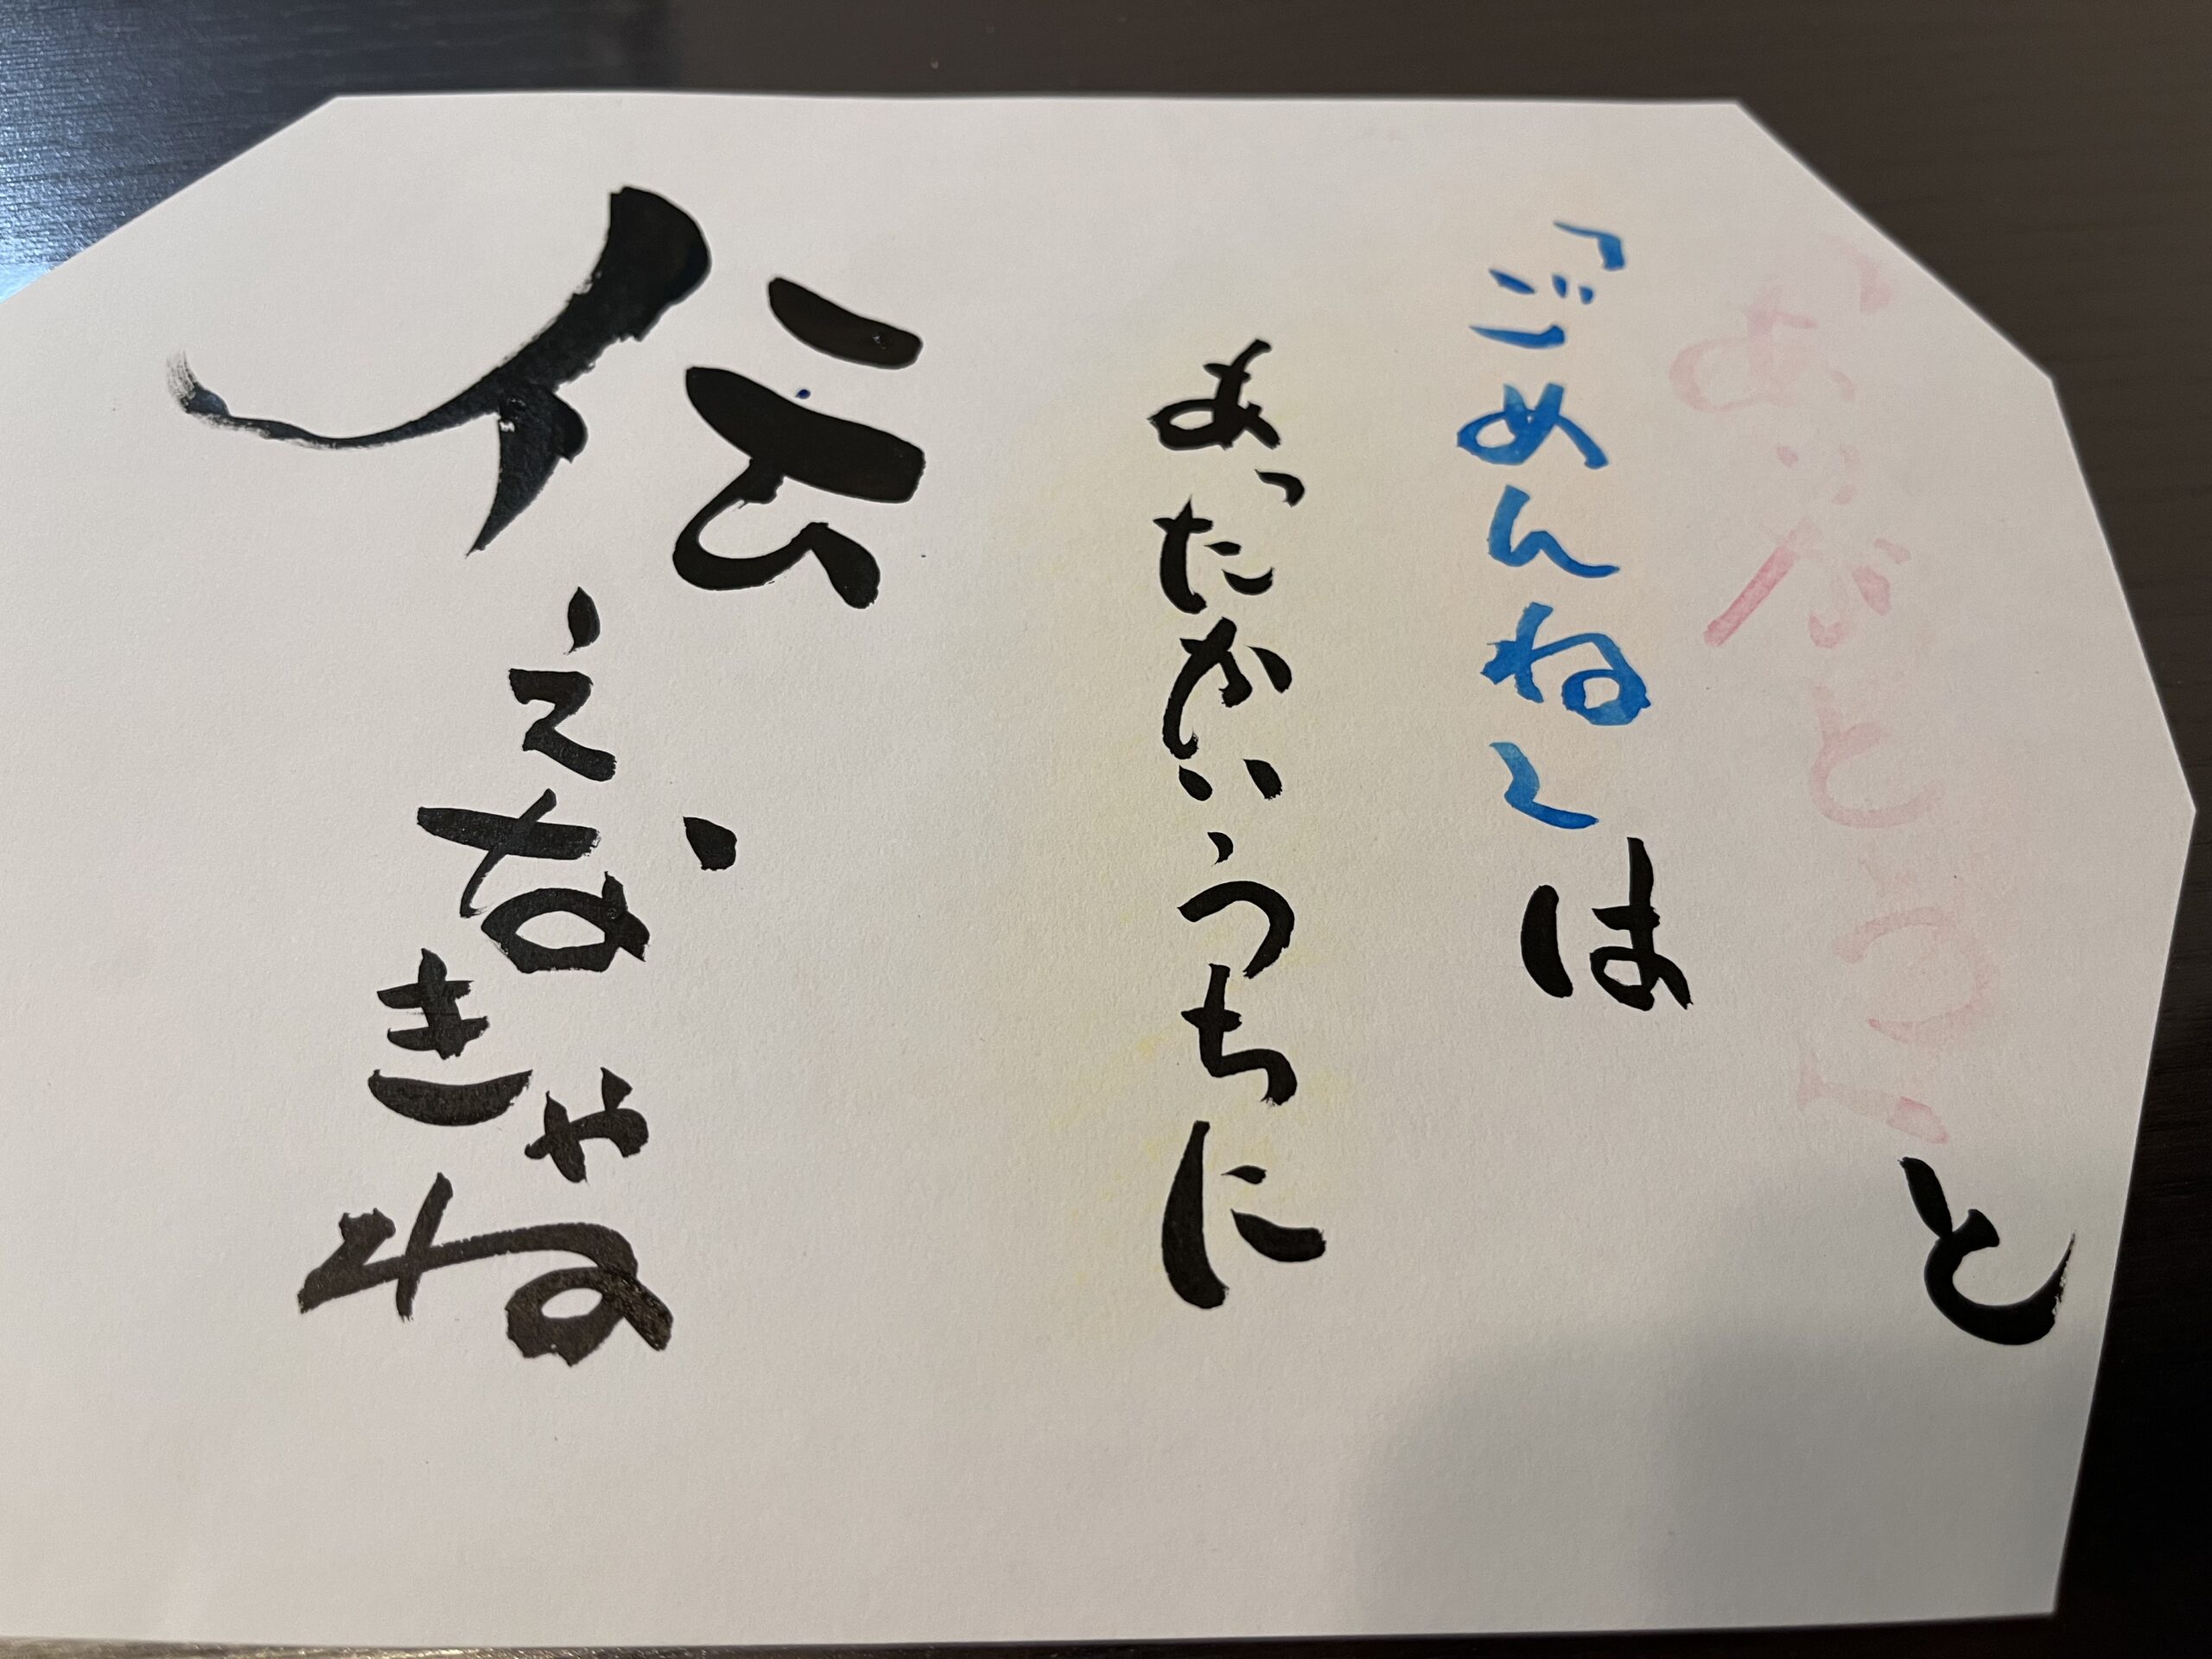 「ありがとう」と
「ごめんね」は
あったかいうちに
伝えなきゃね